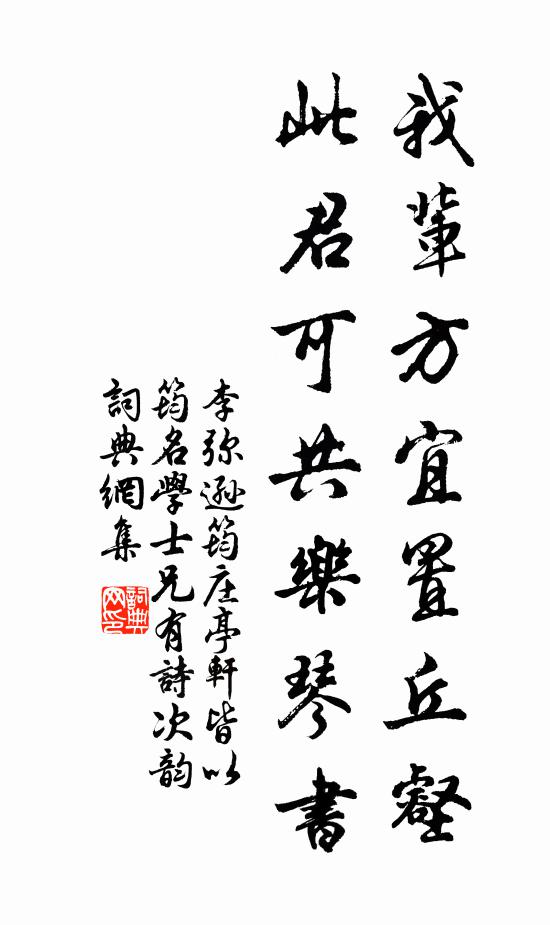 我輩方宜置丘壑
此君可共樂琴書
李弥遜筠庄亭軒皆以
筠名學士兄有詩次韵
詞典網集
詞典
网印